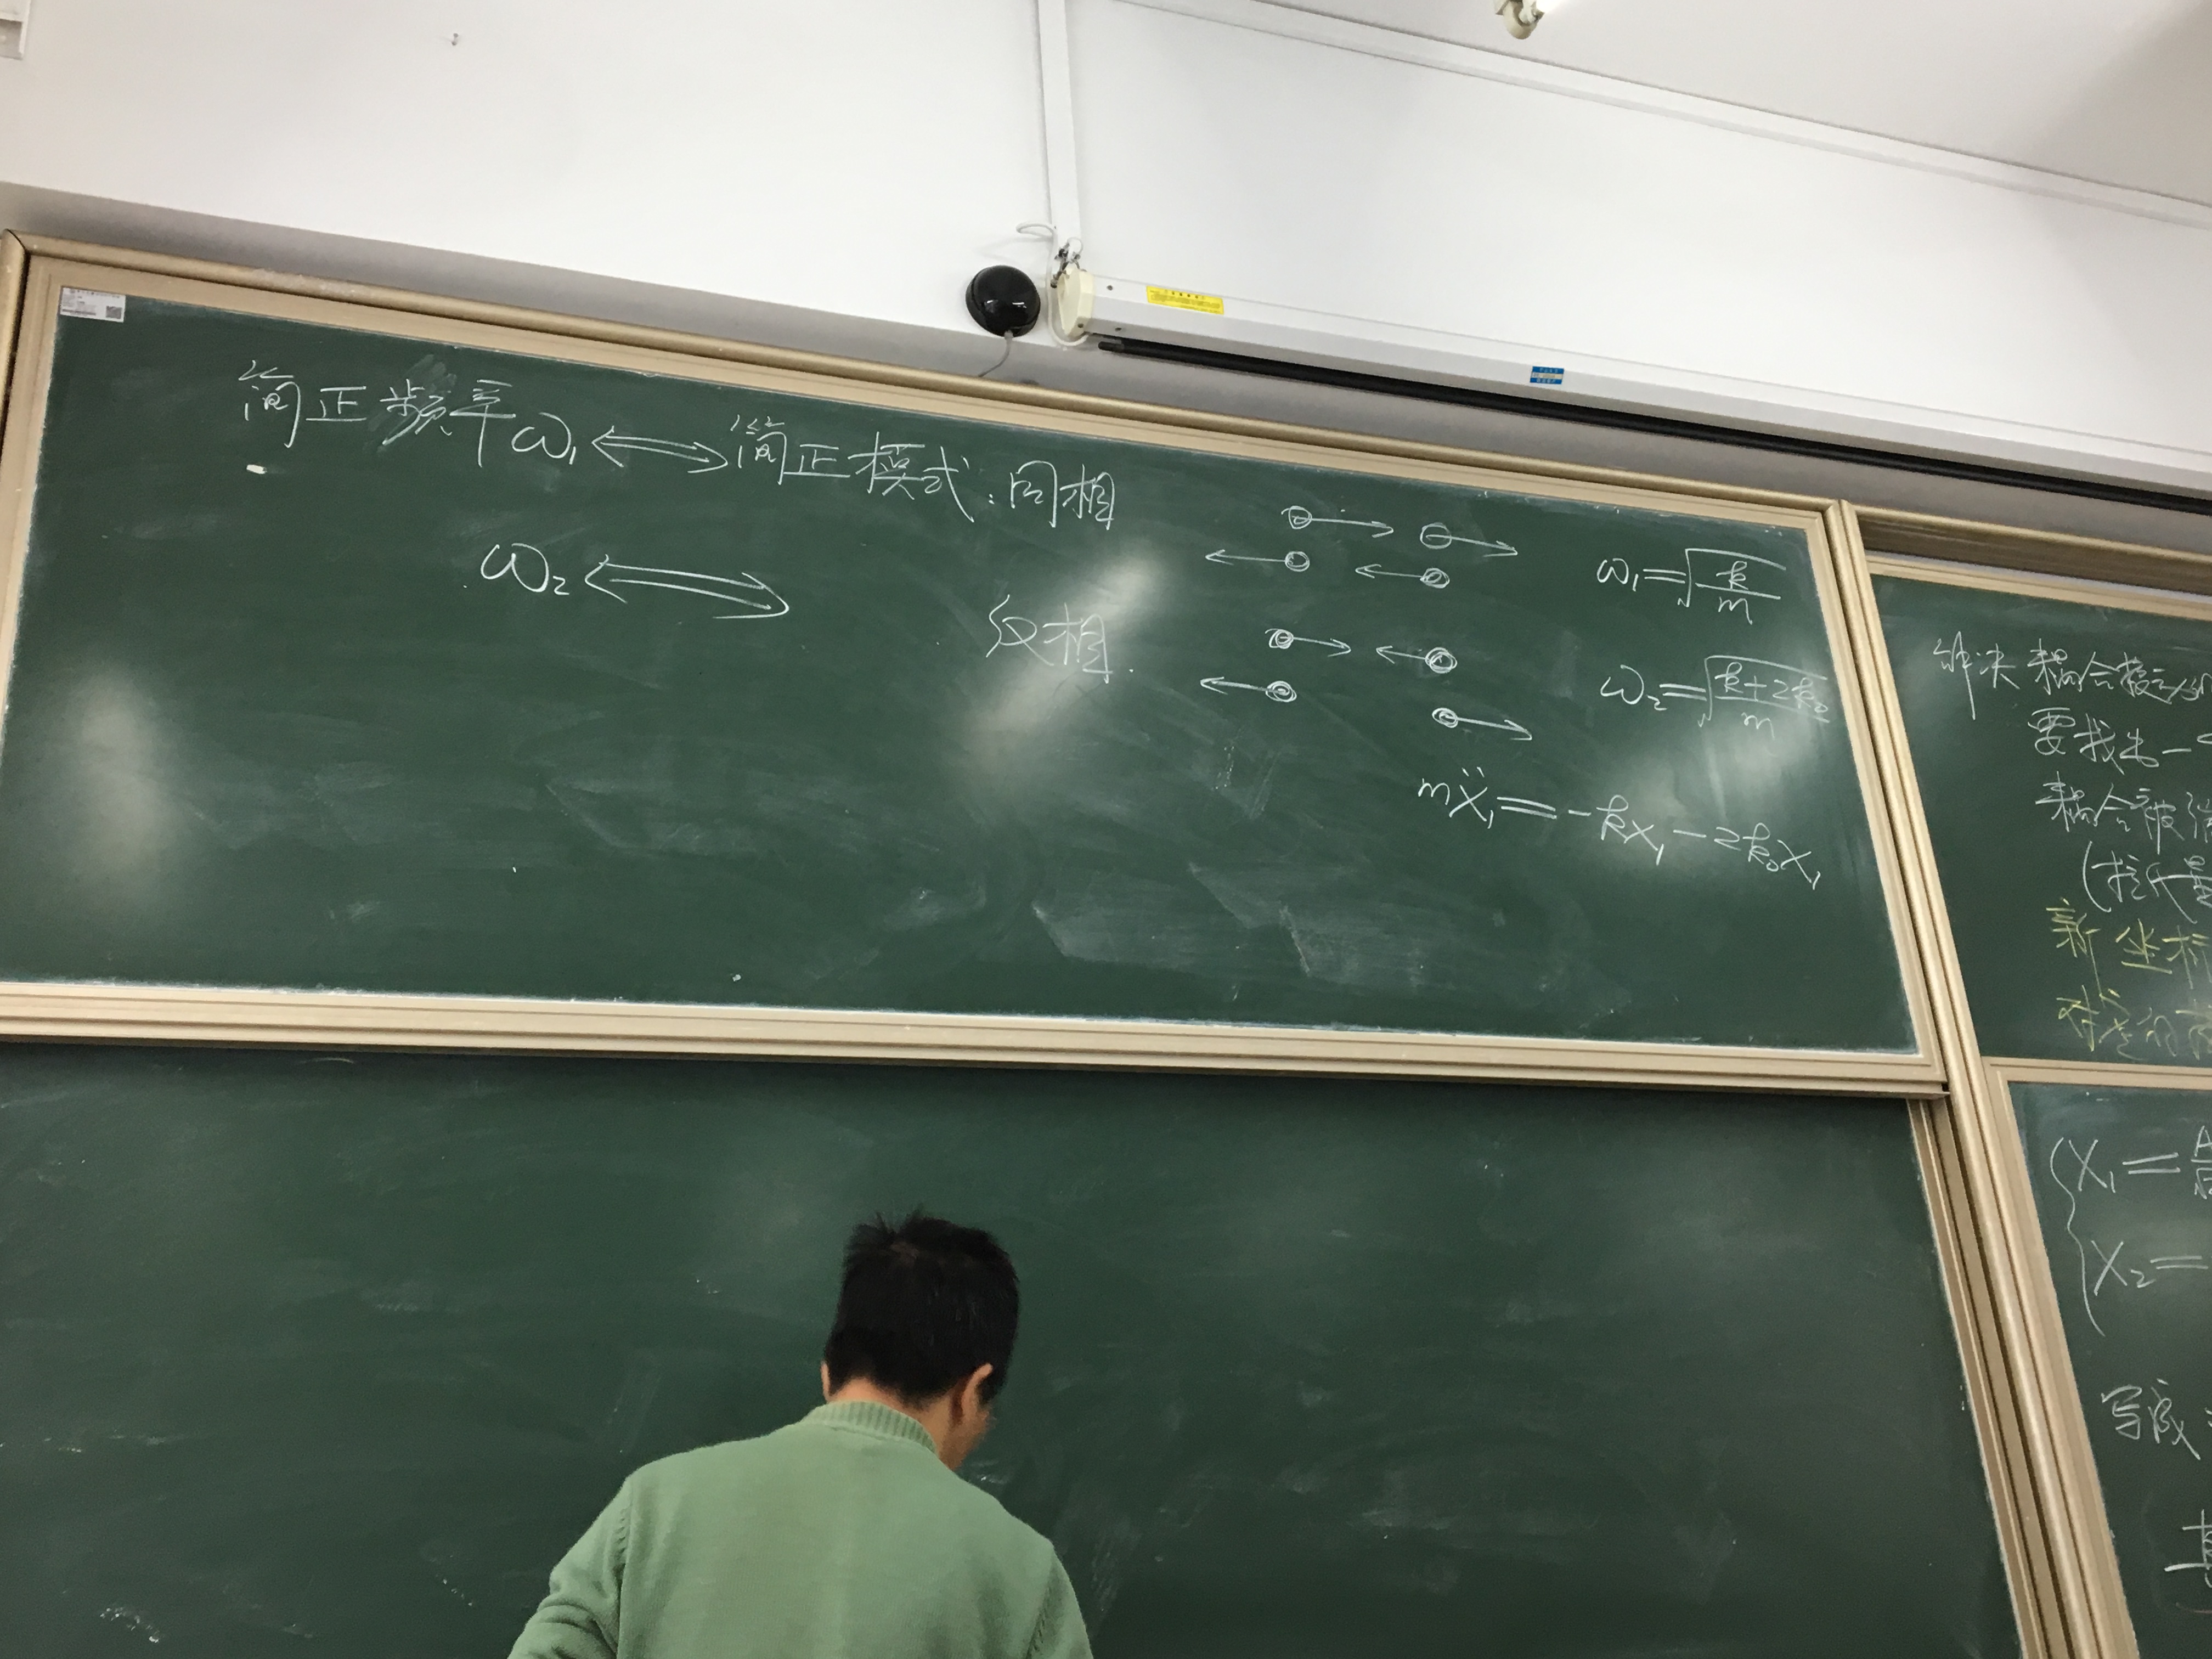 简正频率ω₁⟺简正模式:同相
ω₁=√(k/m)
ω₂⟺ 反相
ω₂=√((k+2k₀)/m)
mẍ₁=-kx₁-2k₀x₁
解决耦合
要找出一
耦合被
新坐标
X₁=
X₂=
写成